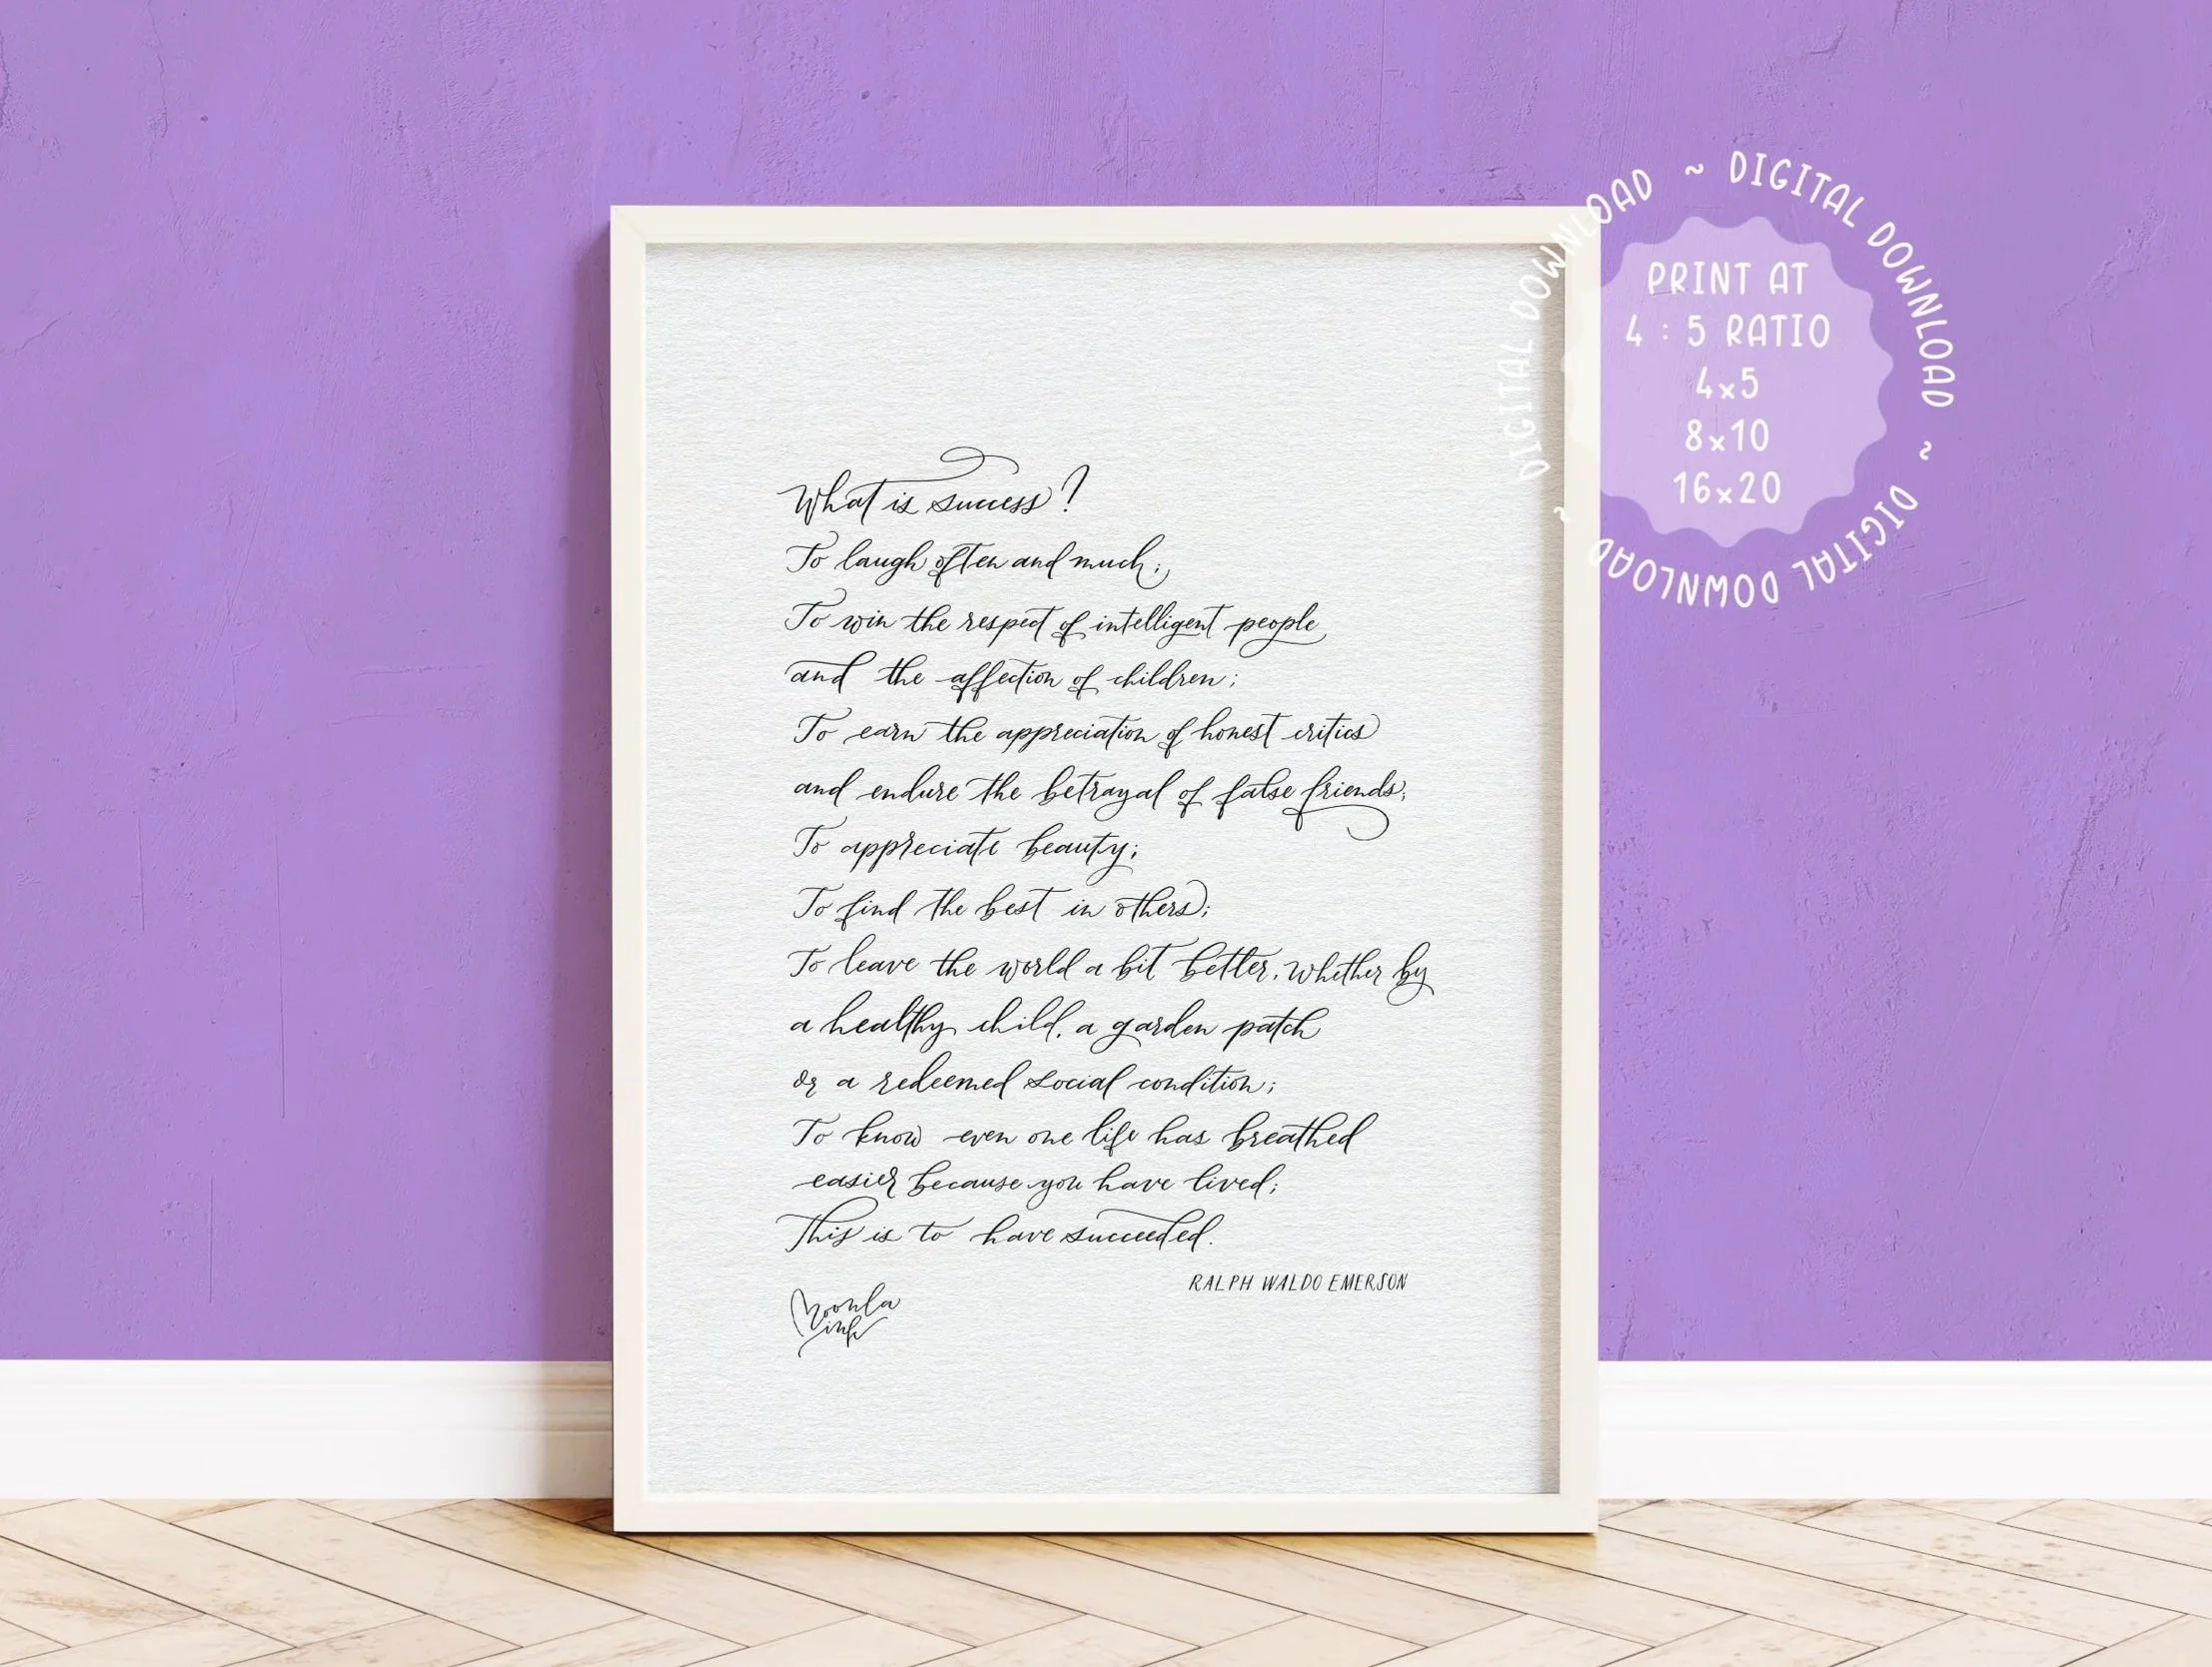 What is success?
To laugh often and much;
To win the respect of intelligent people
and the affection of children;
To earn the appreciation of honest critics
and endure the betrayal of false friends;
To appreciate beauty;
To find the best in others;
To leave the world a bit better, whether by
a healthy child, a garden patch
or a redeemed social condition;
To know even one life has breathed
easier because you have lived;
This is to have succeeded.
RALPH WALDO EMERSON
Moonla
ink
~ DIGITAL DOWNLOAD ~ DIGITAL DOWNLOAD ~ DIGITAL DOWNLOAD
PRINT AT
4 : 5 RATIO
4x5
8x10
16x20